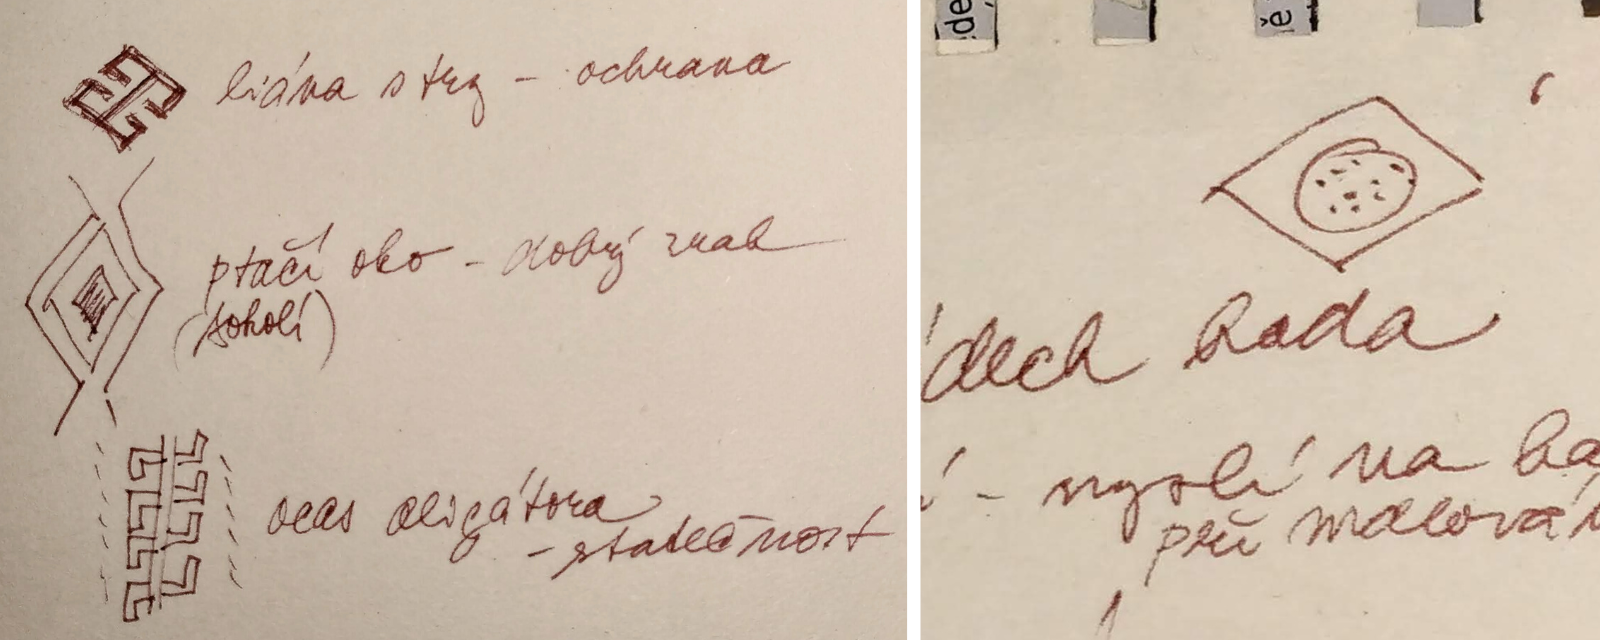 liána s trny – ochrana
ptačí oko – dobrý znak
(sokolí)
ocas aligátora
– statečnost
de
ě
dech hada
í – myslí na ha
při malován